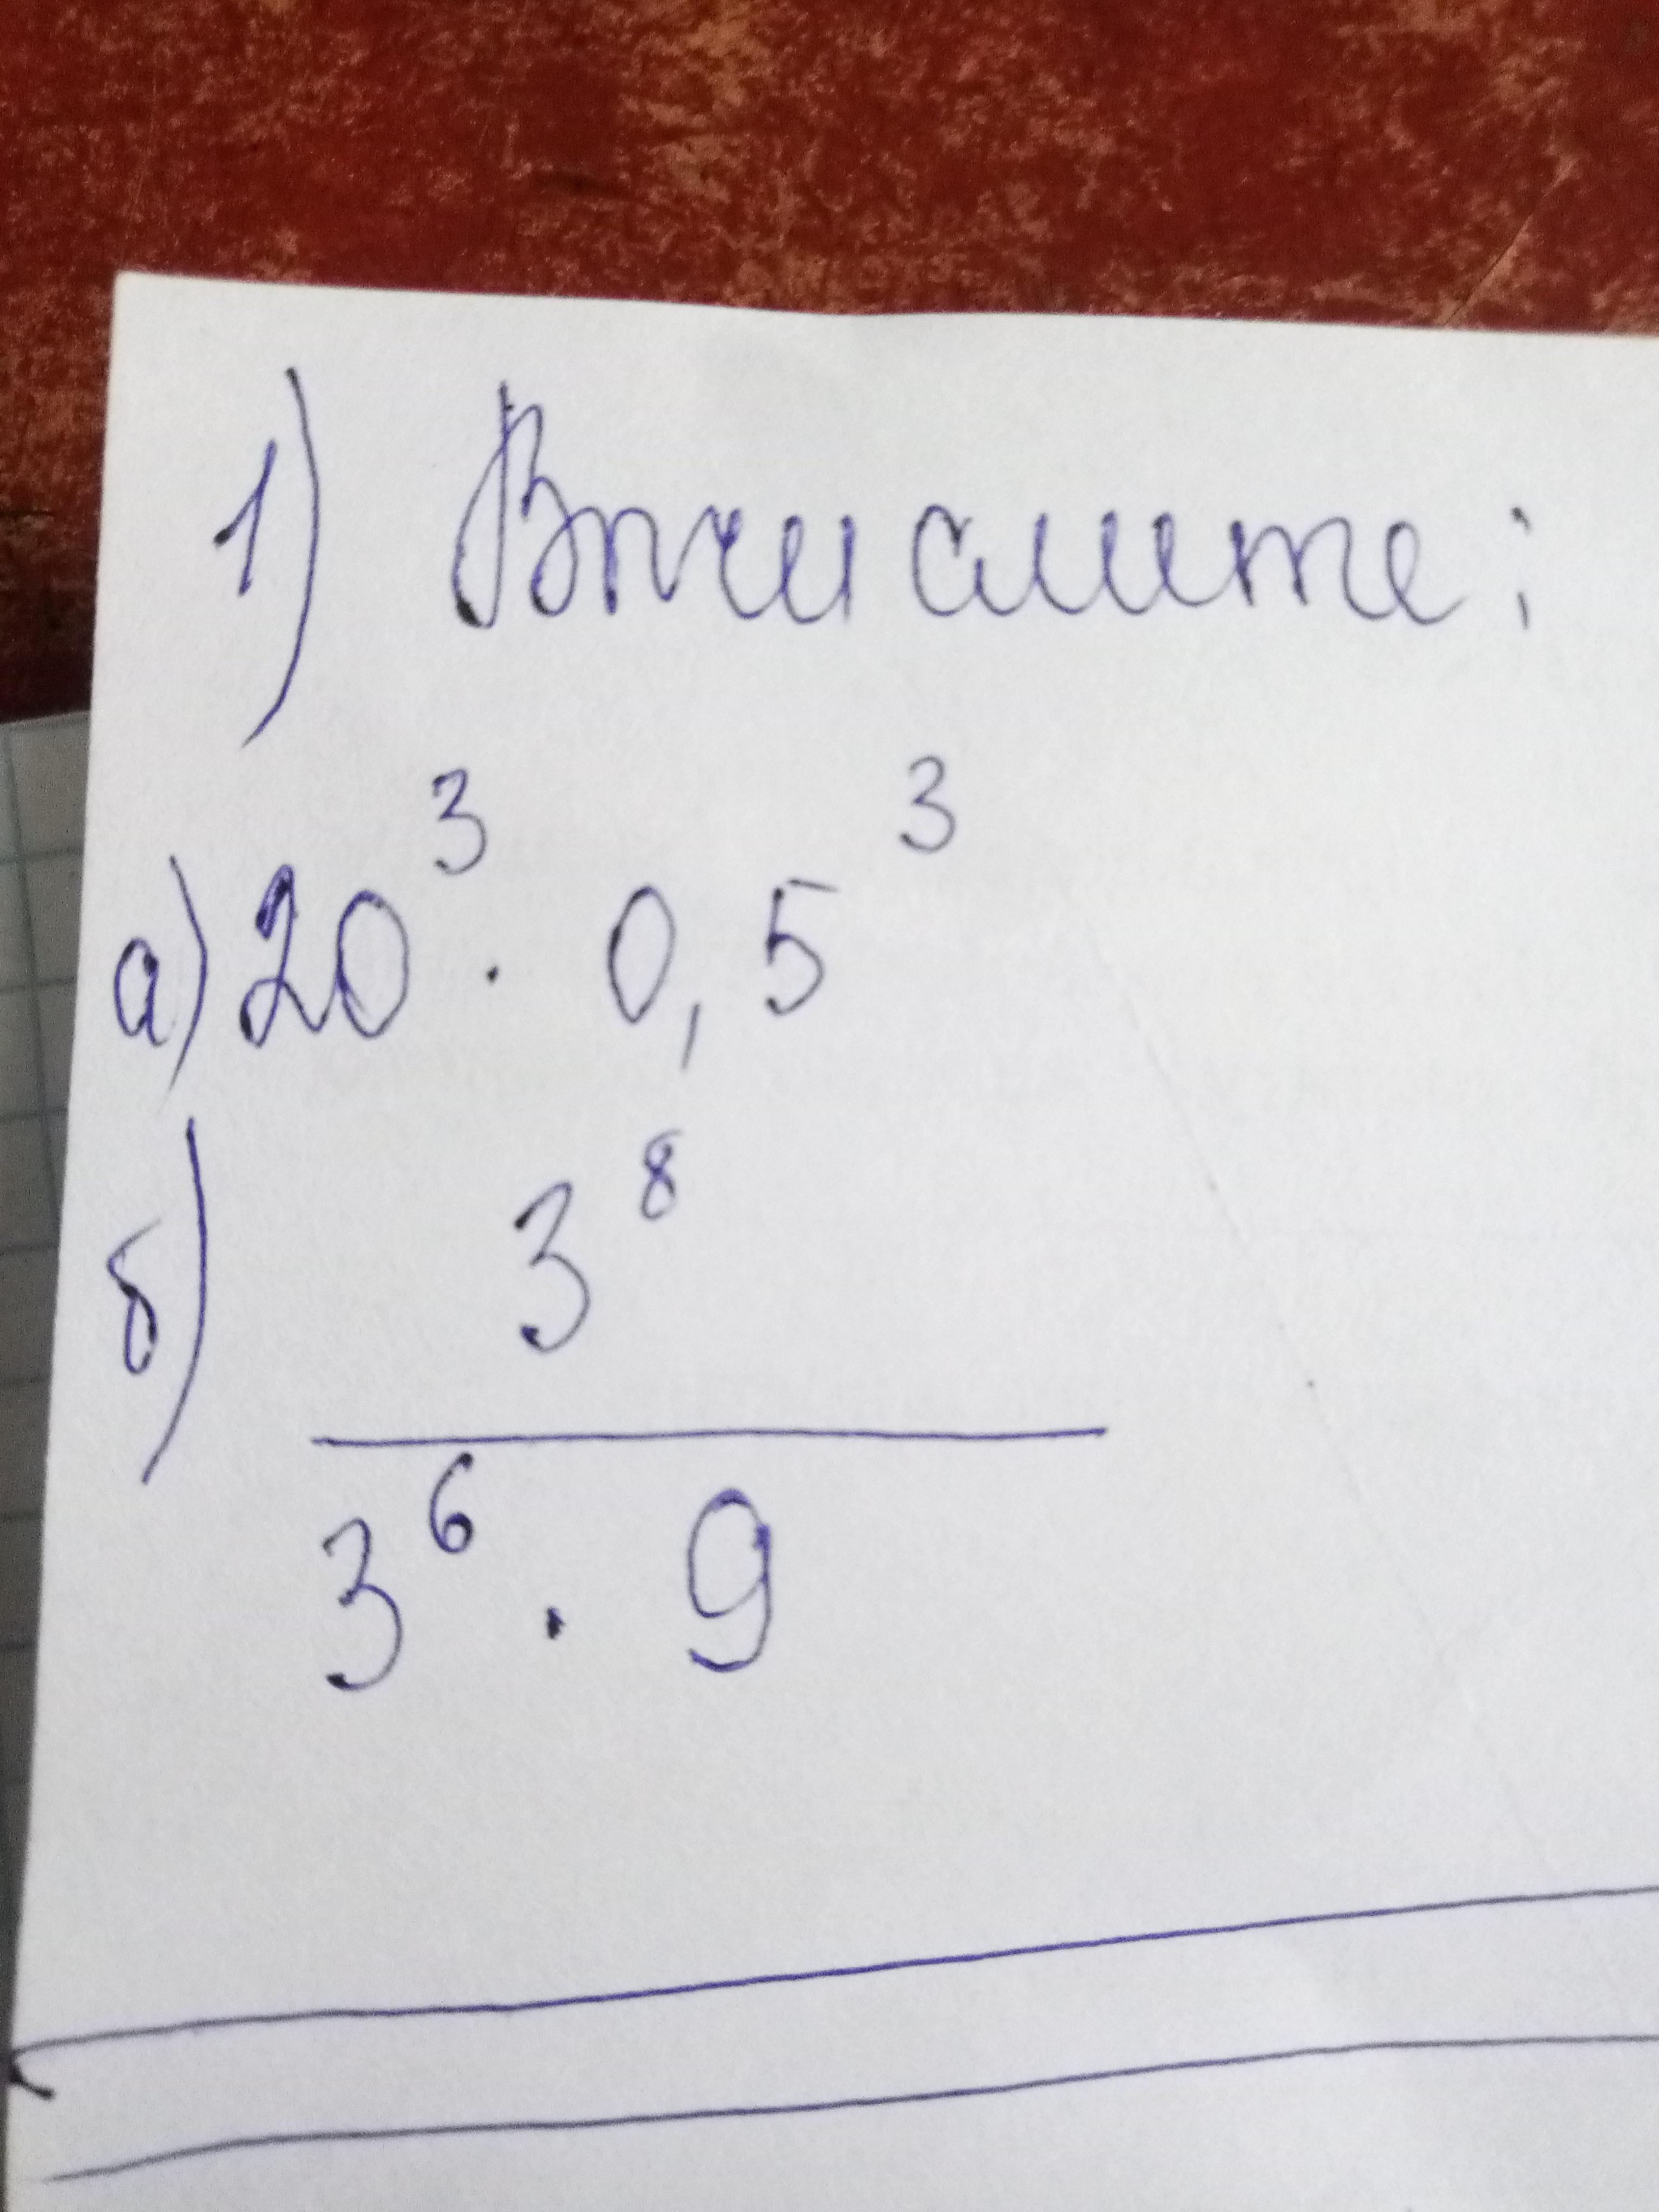 1) Вычислите:
а) 20³ · 0,5³
б) 3⁸
3⁶ · 9